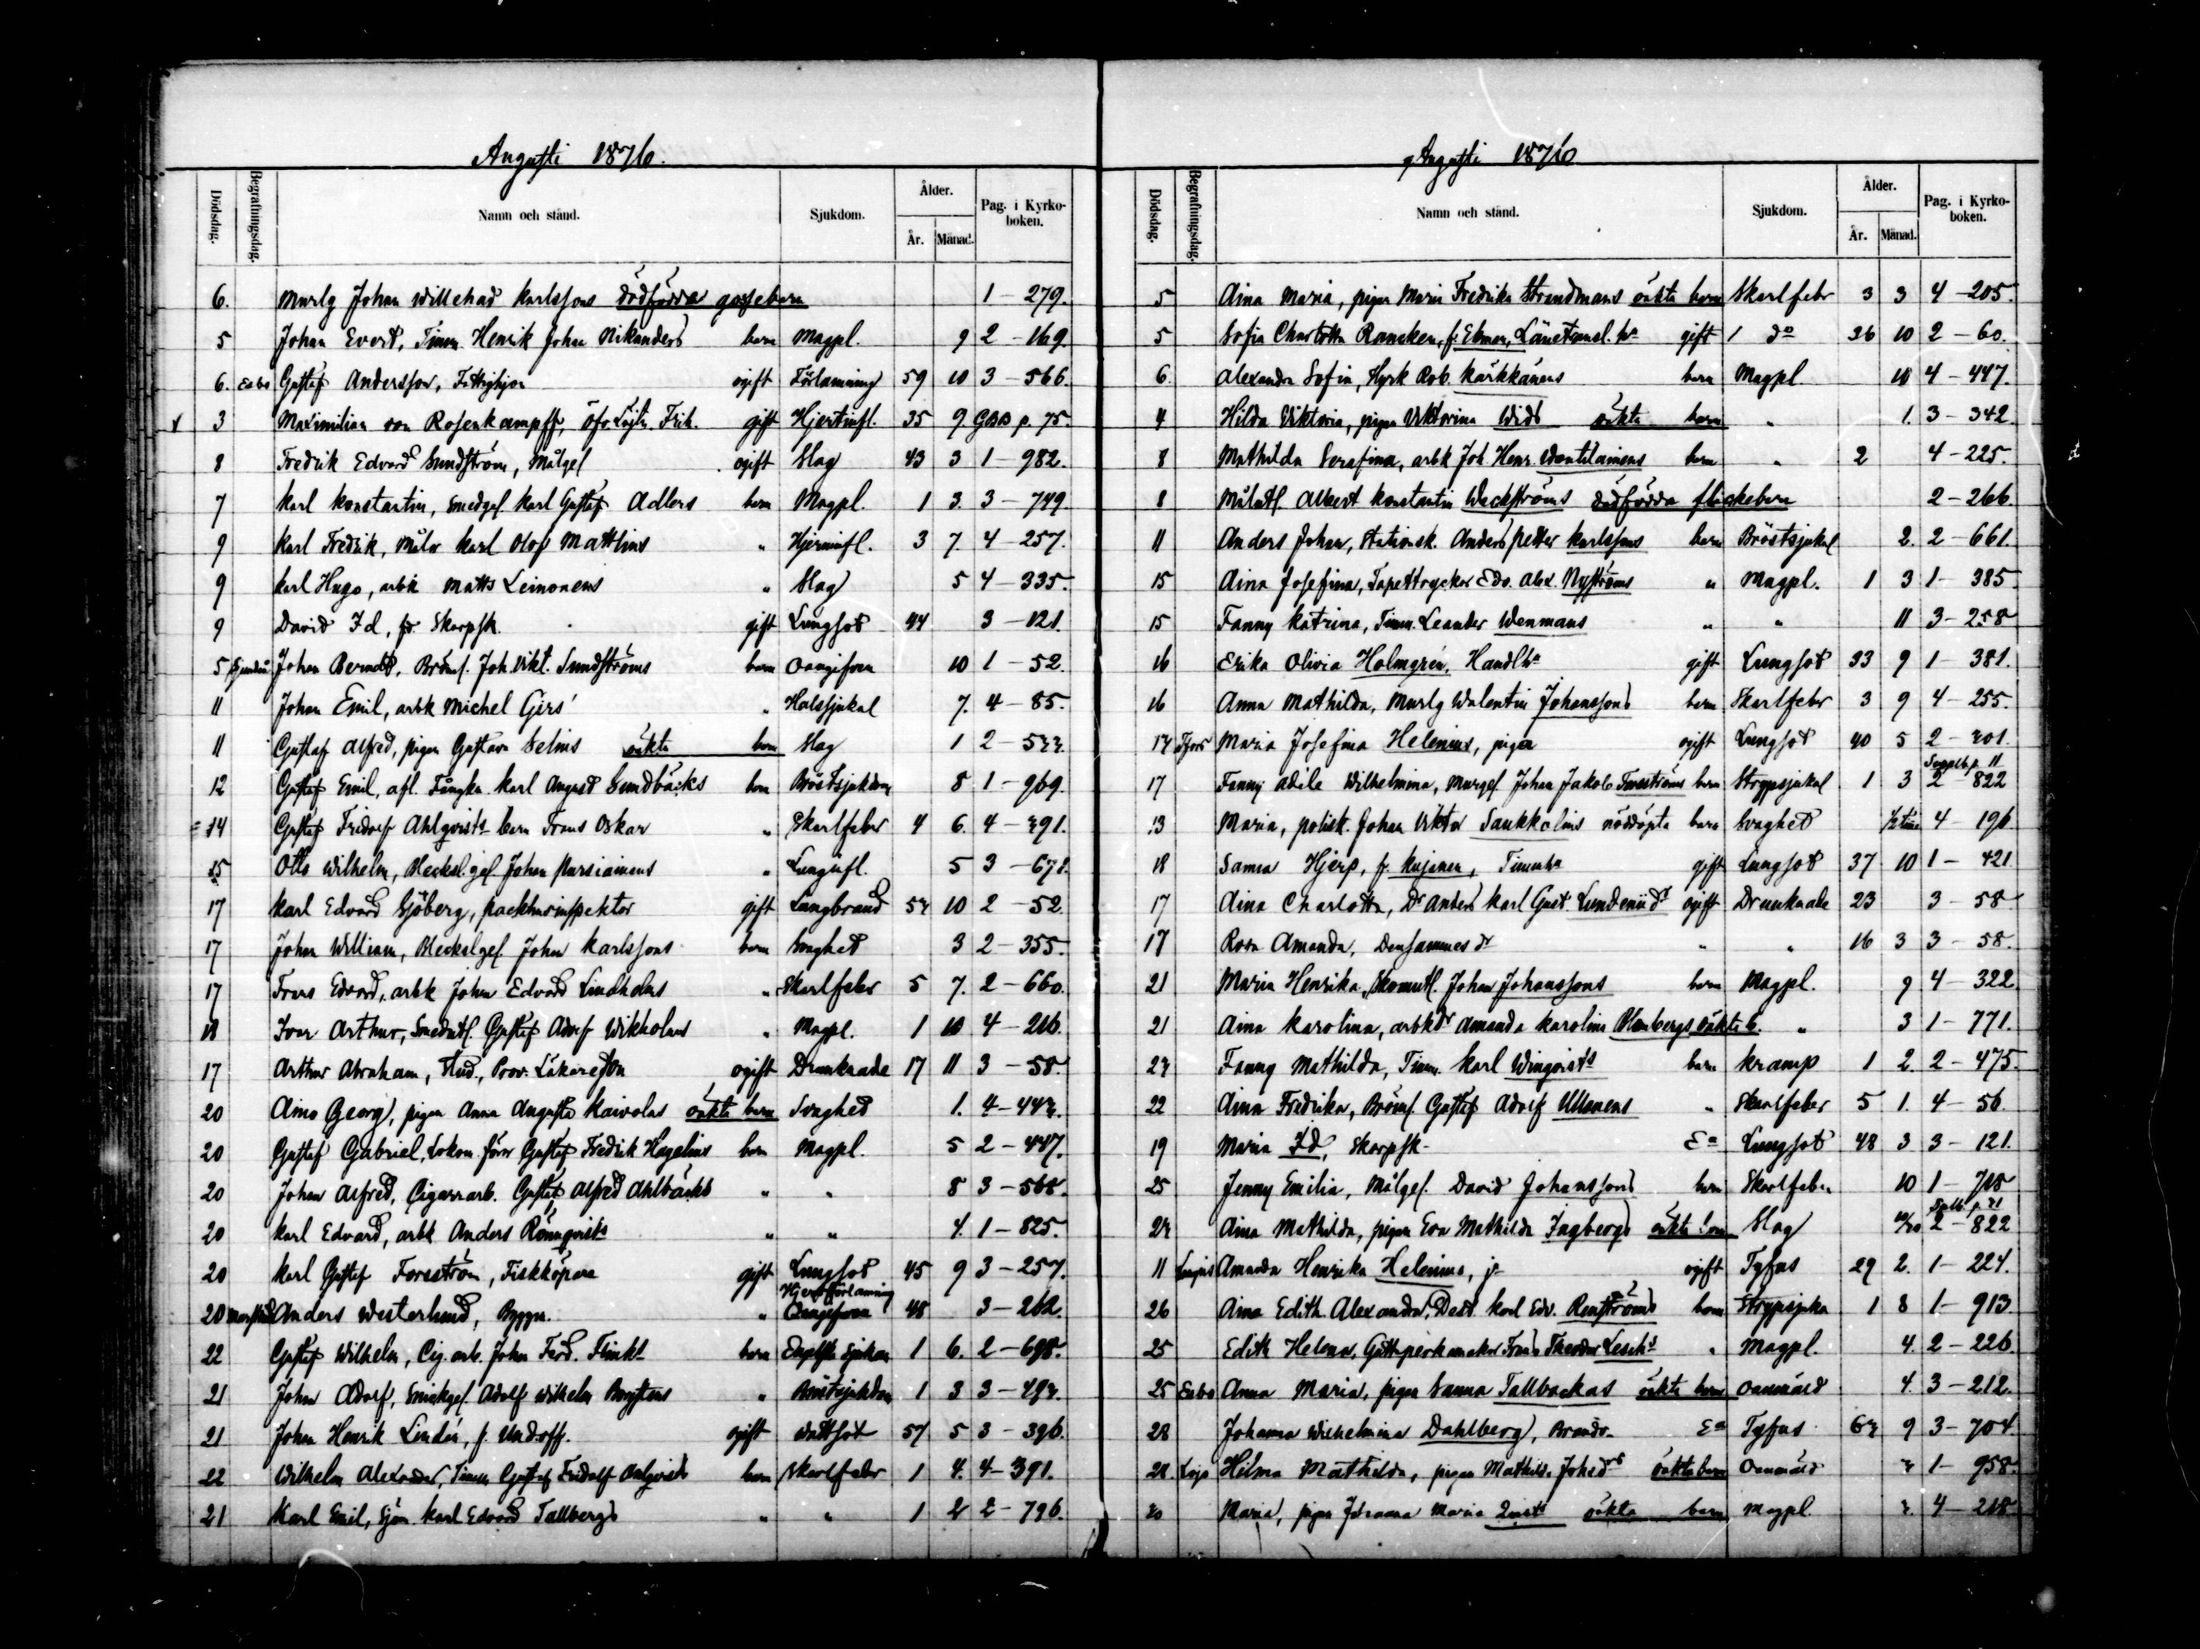 Augusti 1876.
Dödsdag. Begrafningsdag. Namn och stånd. Sjukdom. Ålder. År. Månad. Pag. i Kyrkoboken.
6. Murlg Johan Willehad Karlssons dödfödda gossebarn 1 - 279.
5 Johan Evert, Timm. Henrik Johan Nikanders barn Magpl. 9 2 - 169
6. Esbo Gustaf Andersson, Fattighjon ogift Förlamning 59 10 3 - 566.
3 Maximilian von Rosenkampff, Öfv Löjtn. Frih. gift Hjertinfl. 35 9 p. 75.
8 Fredrik Edvard Sundström, Målgef ogift Slag 43 3 1 - 982.
7 Karl Konstantin, Smedgef. Karl Gustaf Adlers barn Magpl. 1 3. 3 - 749.
9 Karl Fredrik, Målar Karl Olof Mattlins " Hjerninfl. 3 7. 4 - 257.
9 Karl Hugo, arbk Matts Leinonens " Slag 5 4 - 335.
9 David Id, fr. Skarpsk. gift Lungsot 44 3 - 121.
5 Johan Berndt, Brömf. Joh. Vikt. Sundströms barn Oangifven 10 1 - 52.
11 Johan Emil, arbk Michel Girs' " Halssjukd 7. 4 - 85.
11 Gustaf Alfred, pigan Gustava Selins oäkta barn Slag 1 2 -
12 Gustaf Emil, afl. Fångkn. Karl August Sundbäcks barn Bröstsjukdom 8 1 - 969.
14 Gustaf Fridolf Ahlqvists barn Frans Oskar " Skarlfeber 4 6. 4 - 391.
15 Otto Wilhelm, Bleckslgef. Johan Parsiainens " Lunginfl. 5 3 - 671.
17 Karl Edvard Sjöberg, packhusinspektor gift Lungbrand 53 10 2 - 52.
17 Johan William, Bleckslgef. Johan Karlssons barn Svaghet 3 2 - 355.
17 Frans Edvard, arbk Johan Edvard Lindholms " Skarlfeber 5 7. 2 - 660.
18 Ivar Arthur, Smedutl. Gustaf Adolf Wikholms " Magpl. 1 10 4 - 216.
17 Arthur Abraham, Stud., Prov. Läkareson ogift Drunknade 17 11 3 - 58
20 Aino Georg, pigan Anna Augusta Kaivolas oäkta barn Svaghet 1. 4 - 443.
20 Gustaf Gabriel, Lokom. förar Gustaf Fredrik Hagelins barn Magpl. 5 2 - 447.
20 Johan Alfred, Cigarrarb. Gustaf Alfred Ahlbäcks " " 8 3 - 568.
20 Karl Edvard, arbk Anders Rönnqvists " " 4. 1 - 825.
20 Karl Gustaf Forsström, Fiskköpare gift Lungsot 45 9 3 - 257.
Hjertförlamning
20 Anders Westerlund, Byggn. " Oangifven 48 3 - 262.
22 Gustaf Wilhelm, Cig. arb. Johan Ferd. Flinks barn Engelska Sjukan 1 6. 2 - 698.
21 Johan Adolf, Snickgef. Adolf Wilhelm " Bröstsjukdom 1 3 3 - 493.
21 Johan Henrik Lindén, f. Undoff. ogift Wattsot 57 5 3 - 396.
22 Wilhelm Alexander, Timm Gustaf Fridolf Ahlqvists barn Skarlfebr 1 4. 4 - 391.
21 Karl Emil, Sjöm. Karl Edvard Tallbergs " " 1 2 2 - 796.
Augusti 1876
Dödsdag. Begrafningsdag. Namn och stånd. Sjukdom. Ålder. År. Månad. Pag. i Kyrkoboken.
5 Aina Maria, pigan Maria Fredrika Strandmans oäkta barn Skarlfebr 3 3 4 - 205.
5 Sofia Charlotta Rancken, f. Ekman, Länetensl. ha gift do 36 10 2 - 60.
6 Alexandra Sofia, Hyrk Rob. Kärkkänens barn Magpl 10 4 - 447.
4 Hilda Viktoria, pigan Viktorina Wids oäkta barn " 1. 3 - 342.
8 Mathilda Serafina, arbk Joh. Henr. Wäntilainens barn " 2 4 - 225.
8 Målutl. Albert Konstantin Weckströms dödfödda flickebarn 2 - 266.
11 Anders Johan, Stationsk. Anders Petter Karlssons barn Bröstsjukd 2. 2 - 661.
15 Aina Josefina, Tapettryckar Edv. Alex. Nyströms " Magpl. 1 3 1 - 385.
15 Fanny Katrina, Timm. Leander Wenmans " " 11 3 - 258
16 Erika Olivia Holmgrén, Handl ha gift Lungsot 33 9 1 - 381.
16 Anna Mathilda, Murlg Walentin Johanssons barn Skarlfeber 3 9 4 - 255.
Maria Josefina Helenius, pigan ogift Lungsot 40 5 2 - 301.
17 Fanny Adele Wilhelmina, Murgef Johan Jakob Forsströms barn Strypsjukd 1 3 2 822
13 Maria, polisk. Johan Viktor Saukkolins nöddöpta barn Svaghet 4 - 196
18 Sanna Hjerp, f. Kujanen, Timm ha gift Lungsot 37 10 1 - 421
17 Aina Charlotta, Dr Anders Karl Gust. Lundenii dr ogift Drunknade 23 3 - 58
17 Rosa Amanda, Densammes dr " " 16 3 3 - 58.
21 Maria Henrika, Skomutl. Johan Johanssons barn Magpl. 9 4 - 322
21 Aina Karolina, arbk dr Amanda Karolina Blombergs oäkta b. " 3 1 - 771.
23 Fanny Mathilda, Timm. Karl Winqvists barn Kramp 1 2. 2 - 475.
22 Aina Fredrika, Brömf. Gustaf Adolf Ullmens " Skarlfeber 5 1. 4 - 56.
19 Maria Id, Skarpsk. Ea Lungsot 48 3 3 - 121.
25 Jenny Emilia, Målgef. David Johanssons barn Skarlfeber 10 1 - 718
23 Aina Mathilda, pigan Eva Mathilda Ingbergs oäkta barn Slag 2 - 822
11 Amanda Henrika Helenius, j- ogift Tyfus 29 2. 1 - 224.
26 Aina Edith Alexandra, Dest. Karl Edv. Renströms barn Strypsjuka 1 8 1 - 913
25 Edith Helena, Guttaperkamakar Frans Theodor Leschs " Magpl. 4. 2 - 226.
25 Esbo Anna Maria, pigan Sanna Tallbackas oäkta barn Oanmäld 4. 3 - 212.
28 Johanna Wilhelmina Dahlberg, Brandv. Ea Tyfus 63 9 3 - 704
28 Lojo Hilma Mathilda, pigan Mathilda Johsdrs oäkta barn Oanmäld 3 1 - 958.
30 Maria, pigan Johanna Maria Qvists oäkta barn Magpl. 3. 4 - 218